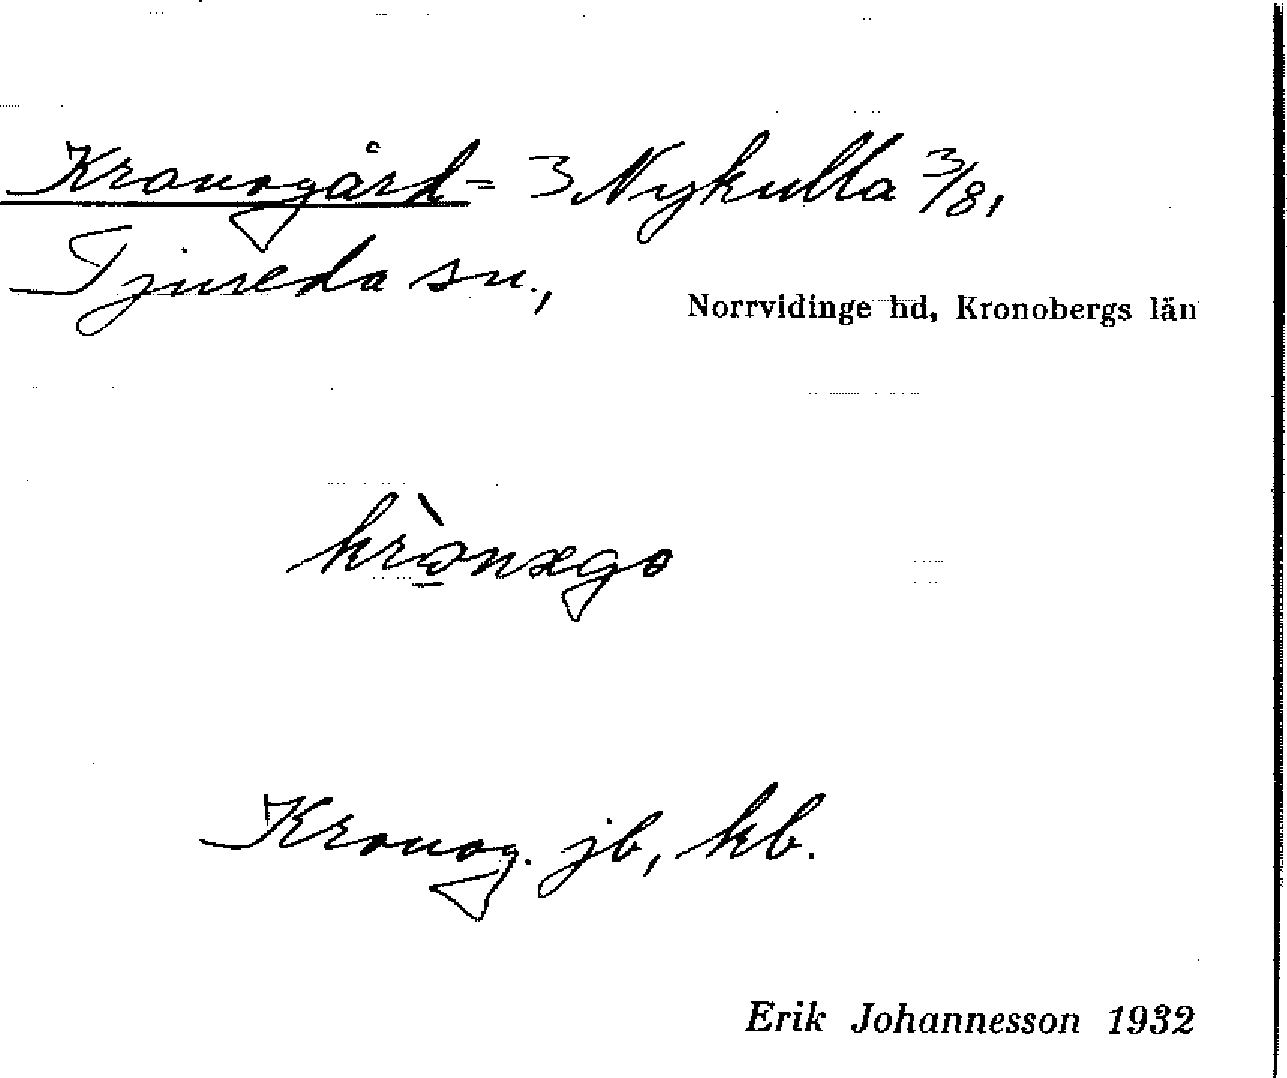 Kronogård = 3 Nykulla 3/8,
Tjureda sn.,
Norrvidinge hd, Kronobergs län
krònxgo
Kronog. jb, kb.
Erik Johannesson 1932